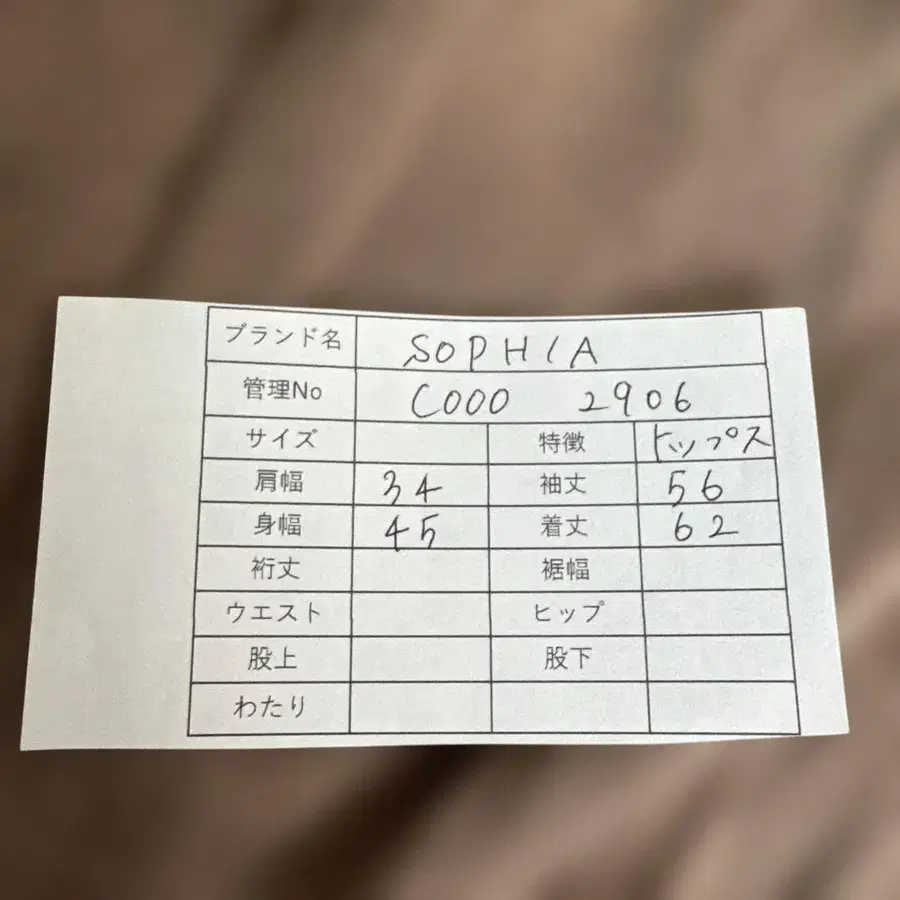 ブランド名 SOPHIA
管理No C000 2906
サイズ 特徴 トップス
肩幅 34 袖丈 56
身幅 45 着丈 62
裄丈 裾幅
ウエスト ヒップ
股上 股下
わたり